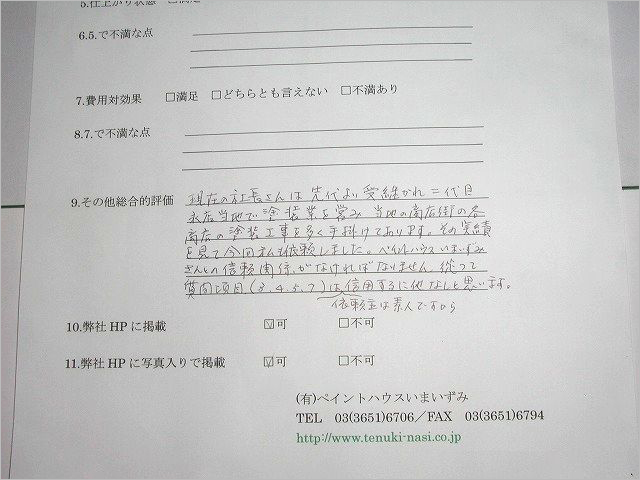 5.仕上がり状態 □満足
6.5.で不満な点
7.費用対効果 □満足 □どちらとも言えない □不満あり
8.7.で不満な点
9.その他総合的評価
現在の社長さんは先代より受継がれ二代目
永店当地で塗装業を営み 当地の商店街の各
商店の塗装工事を多く手掛けております。その実績
を見て今回私も依頼しました。ペイントハウスいまいずみ
さんとの信頼関係がなければなりません。従って
質問項目(3.4.5.7)は信用するに他なしと思います。
依頼主は素人ですから
10.弊社HPに掲載 ☑可 □不可
11.弊社HPに写真入りで掲載 ☑可 □不可
(有)ペイントハウスいまいずみ
TEL 03(3651)6706/FAX 03(3651)6794
http://www.tenuki-nasi.co.jp